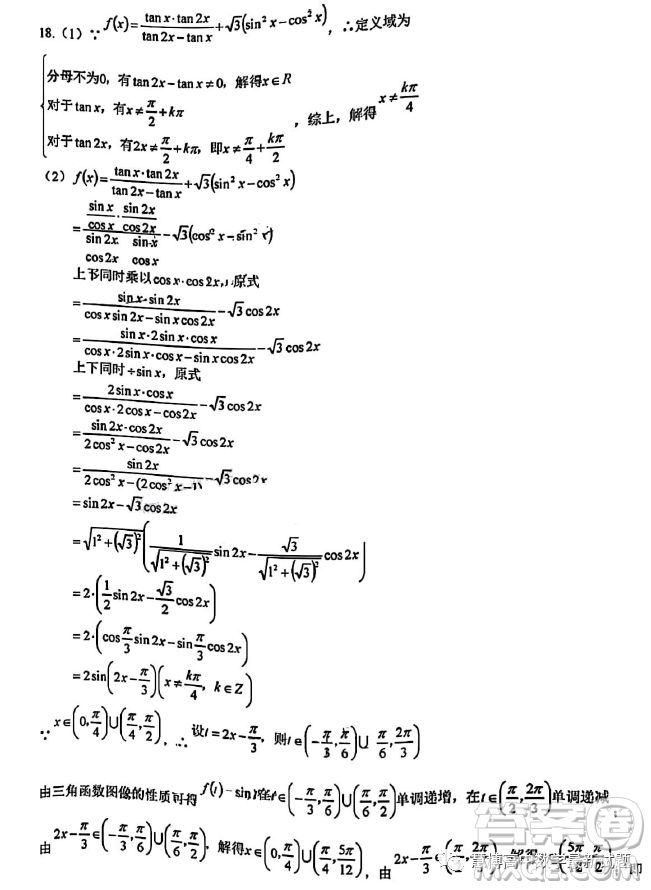 18.（1）∵ f(x)=\frac{tan x·tan 2x}{tan 2x−tan x}+√3(sin²x−cos²x)，∴定义域为
分母不为0，有tan2x−tan x≠0，解得x∈R
对于tan x，有x≠\frac{π}{2}+kπ
，综上，解得x≠\frac{kπ}{4}
对于tan 2x，有2x≠\frac{π}{2}+kπ，即x≠\frac{π}{4}+\frac{kπ}{2}
（2）f(x)=\frac{tan x·tan 2x}{tan 2x−tan x}+√3(sin²x−cos²x)
=\frac{\frac{sin x}{cos x}·\frac{sin 2x}{cos 2x}}{\frac{sin 2x}{cos 2x}−\frac{sin x}{cos x}}−√3(cos²x−sin²x)
上下同时乘以cos x·cos 2x，原式
=\frac{sin x·sin 2x}{cos x sin 2x−sin x cos 2x}−√3cos 2x
=\frac{sin x·2sin x·cos x}{cos x·2sin x·cos x−sin x cos 2x}−√3cos 2x
上下同时÷sin x，原式
=\frac{2sin x·cos x}{cos x·2cos x−cos 2x}−√3cos 2x
=\frac{sin 2x·cos 2x}{2cos²x−cos 2x}−√3cos 2x
=\frac{sin 2x}{2cos²x−(2cos²x−1)}−√3cos 2x
=sin 2x−√3cos 2x
=√(1²+(√3)²)(\frac{1}{√(1²+(√3)²)}sin 2x−\frac{√3}{√(1²+(√3)²)}cos 2x)
=2·(\frac{1}{2}sin 2x−\frac{√3}{2}cos 2x)
=2·(cos\frac{π}{3}sin 2x−sin\frac{π}{3}cos 2x)
=2sin(2x−\frac{π}{3})(x≠\frac{kπ}{4}，k∈Z)
∵x∈(0,\frac{π}{4})∪(\frac{π}{4},\frac{π}{2})，∴设t=2x−\frac{π}{3}，则t∈(−\frac{π}{3},\frac{π}{6})∪(\frac{π}{6},\frac{2π}{3})
由三角函数图像的性质可得f(t)=sin t在t∈(−\frac{π}{3},\frac{π}{6})∪(\frac{π}{6},\frac{π}{2})单调递增，在t∈(\frac{π}{2},\frac{2π}{3})单调递减
由2x−\frac{π}{3}∈(−\frac{π}{3},\frac{π}{6})∪(\frac{π}{6},\frac{π}{2})，解得x∈(0,\frac{π}{4})∪(\frac{π}{4},\frac{5π}{12})，由2x−\frac{π}{3}∈(\frac{π}{2},\frac{2π}{3})，解得x∈(\frac{5π}{12},\frac{π}{2})，即